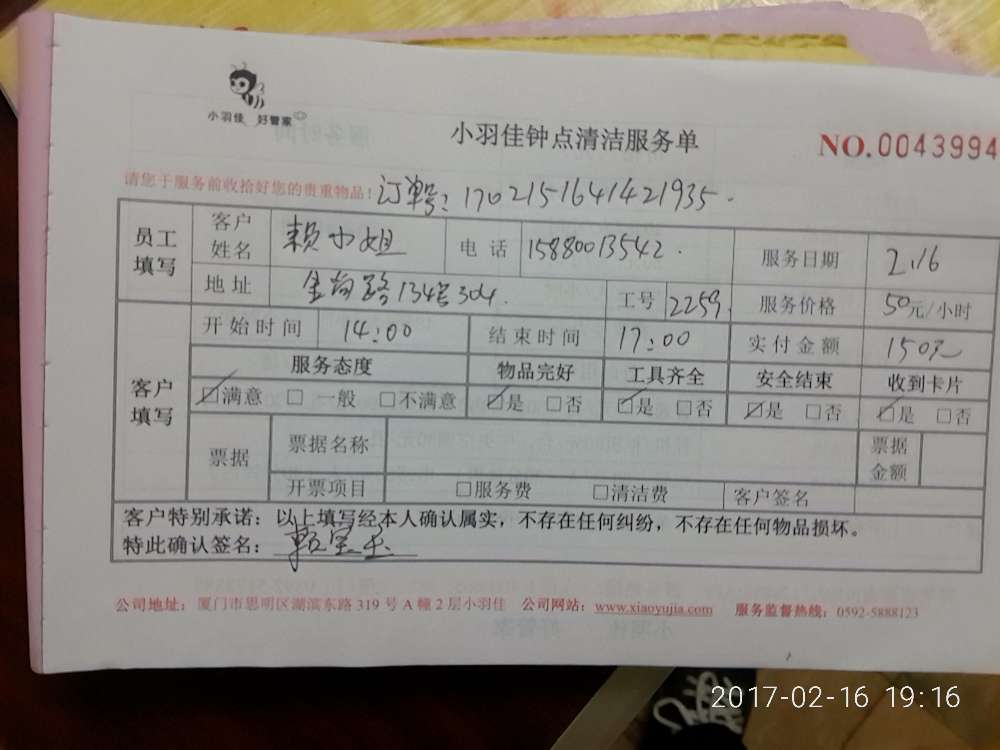 小羽佳 好管家
小羽佳钟点清洁服务单
NO.0043994
请您于服务前收拾好您的贵重物品！订单号：1702151641421935.
员工填写 客户姓名 赖小姐 电话 15880013542. 服务日期 2.16
地址 金尚路134号304. 工号 2259. 服务价格 50元/小时
客户填写 开始时间 14:00 结束时间 17:00 实付金额 150元
服务态度 物品完好 工具齐全 安全结束 收到卡片
☑满意 □一般 □不满意 ☑是 □否 ☑是 □否 ☑是 □否 ☑是 □否
票据 票据名称 票据金额
开票项目 □服务费 □清洁费 客户签名
客户特别承诺：以上填写经本人确认属实，不存在任何纠纷，不存在任何物品损坏。
特此确认签名：赖
公司地址：厦门市思明区湖滨东路319号A幢2层小羽佳 公司网站：www.xiaoyujia.com 服务监督热线：0592-5888123
2017-02-16 19:16